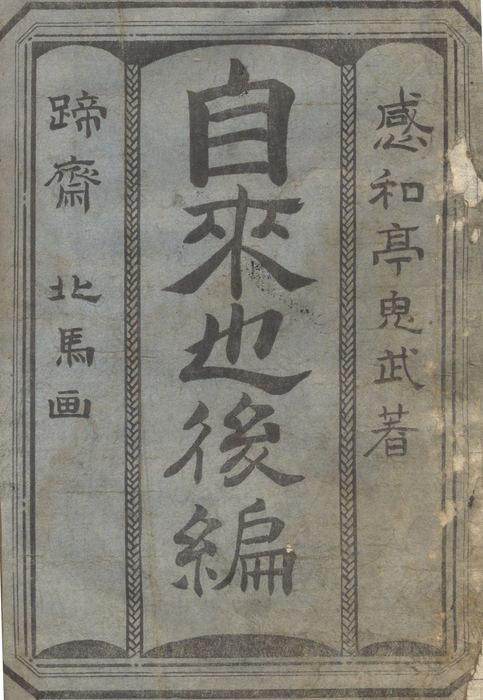 感和亭鬼武著
自來也後編
蹄齋 北馬画